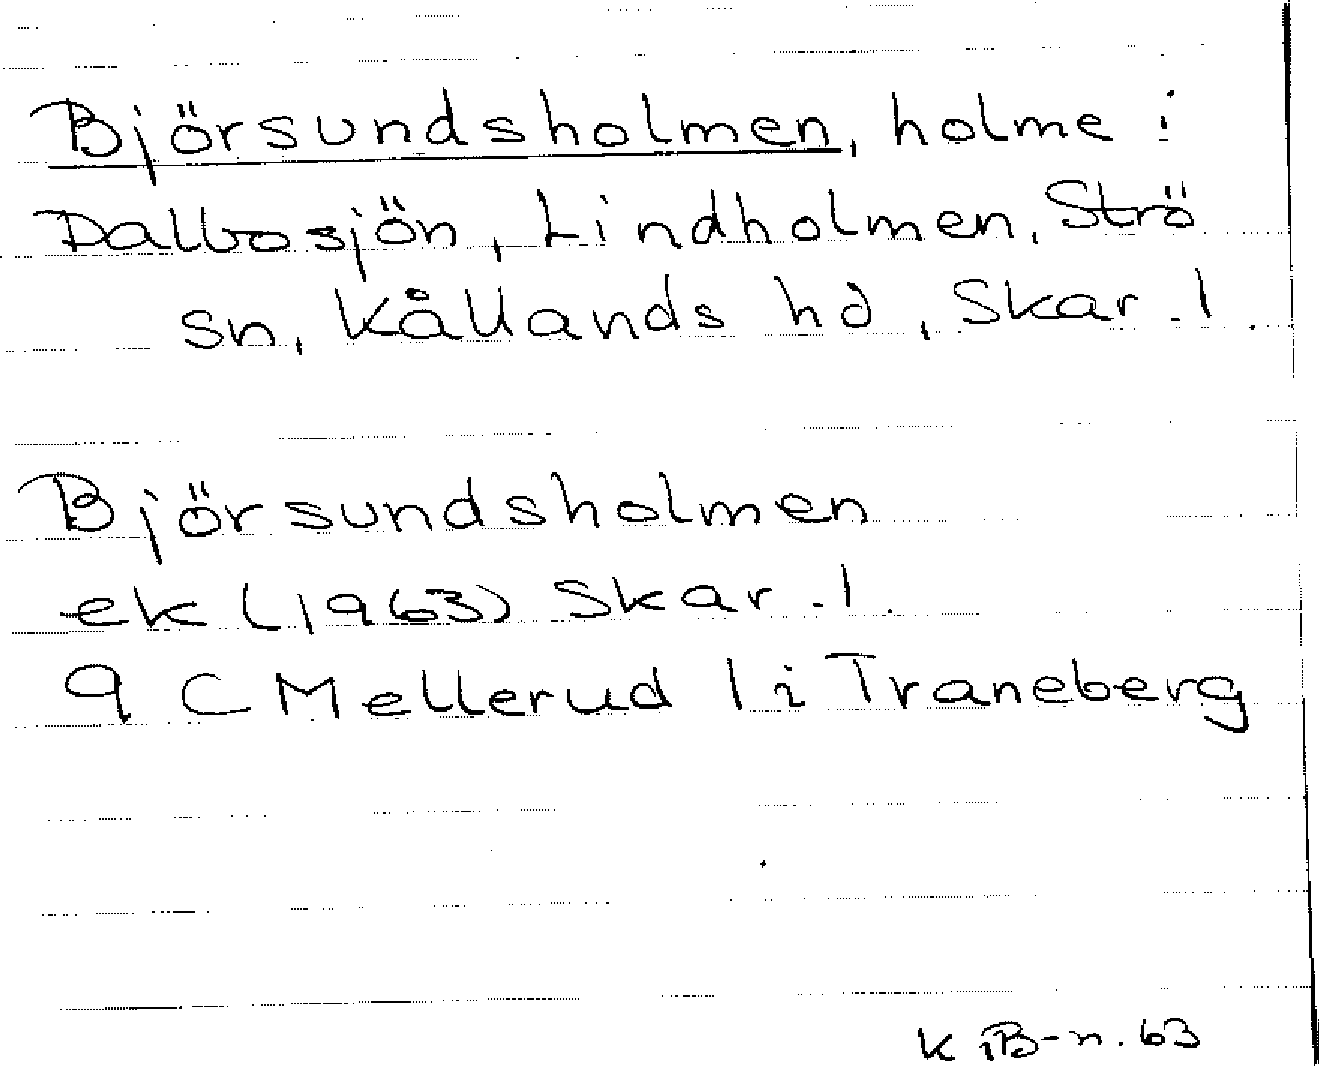 Björsundsholmen, holme i
Dalbosjön, Lindholmen, Strö
sn, Kållands hd, Skar. l.
Björsundsholmen
ek (1963) Skar. l.
9 C Mellerud l i Traneberg